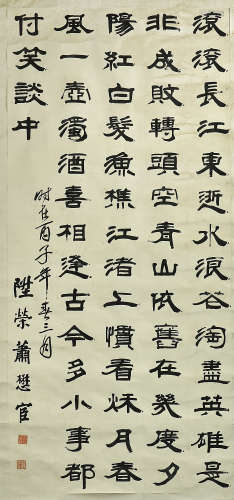 滾滾長江東逝水浪花淘盡英雄是
非成敗轉頭空青山依舊在幾度夕
陽紅白髮漁樵江渚上慣看秋月春
風一壺濁酒喜相逢古今多少事都
付笑談中
時在丙子年春三月
陞榮蕭